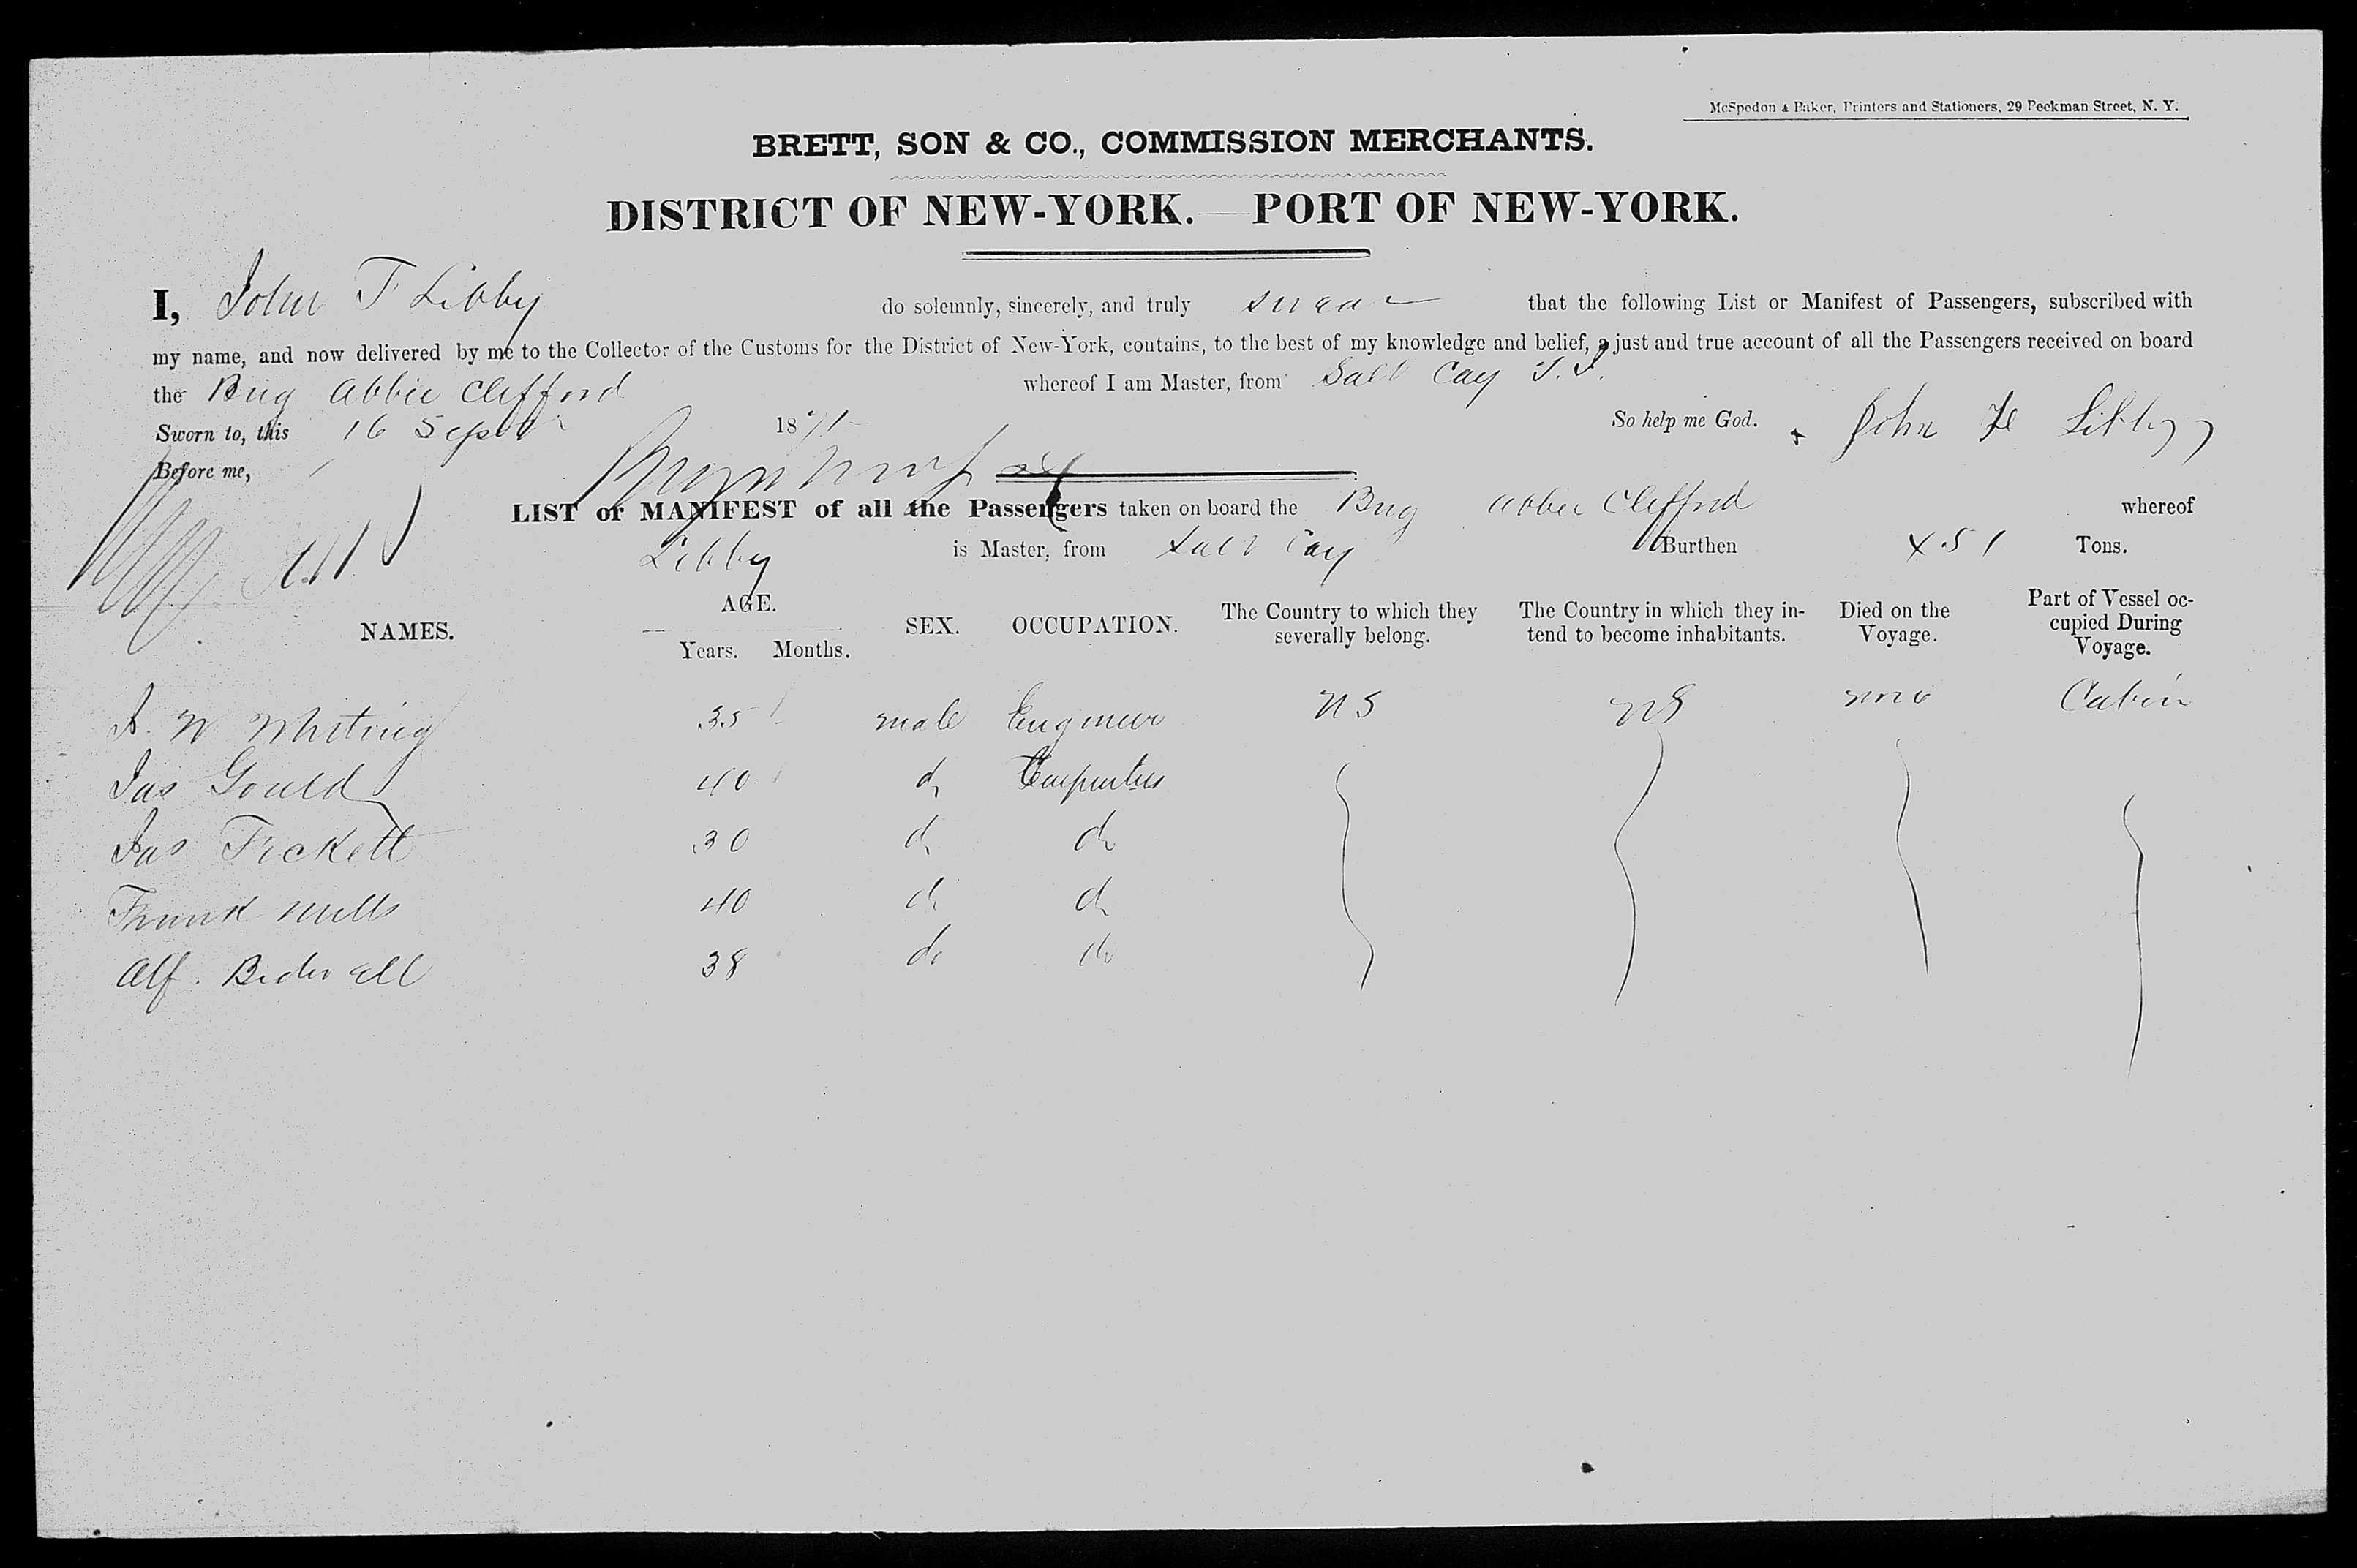 McSpedon & Baker, Printers and Stationers, 29 Beekman Street, N. Y.
BRETT, SON & CO., COMMISSION MERCHANTS.
DISTRICT OF NEW-YORK.—PORT OF NEW-YORK.
I, John T Libby do solemnly, sincerely, and truly swear that the following List or Manifest of Passengers, subscribed with
my name, and now delivered by me to the Collector of the Customs for the District of New-York, contains, to the best of my knowledge and belief, a just and true account of all the Passengers received on board
the Brig Abbie Clifford whereof I am Master, from Salt Cay T.I.
Sworn to, this 16 Sept 1871 So help me God. John Libby
Before me,
LIST or MANIFEST of all the Passengers taken on board the Brig Abbie Clifford whereof
Libby is Master, from Salt Cay Burthen 451 Tons.
NAMES. AGE. Years. Months. SEX. OCCUPATION. The Country to which they severally belong. The Country in which they intend to become inhabitants. Died on the Voyage. Part of Vessel occupied During Voyage.
W Whiting 35 male Engineer US US none Cabin
Jas Gould 40 do Carpenter
Jas Fickett 30 do do
Frank Mills 40 do do
Alf. Bidwell 38 do do